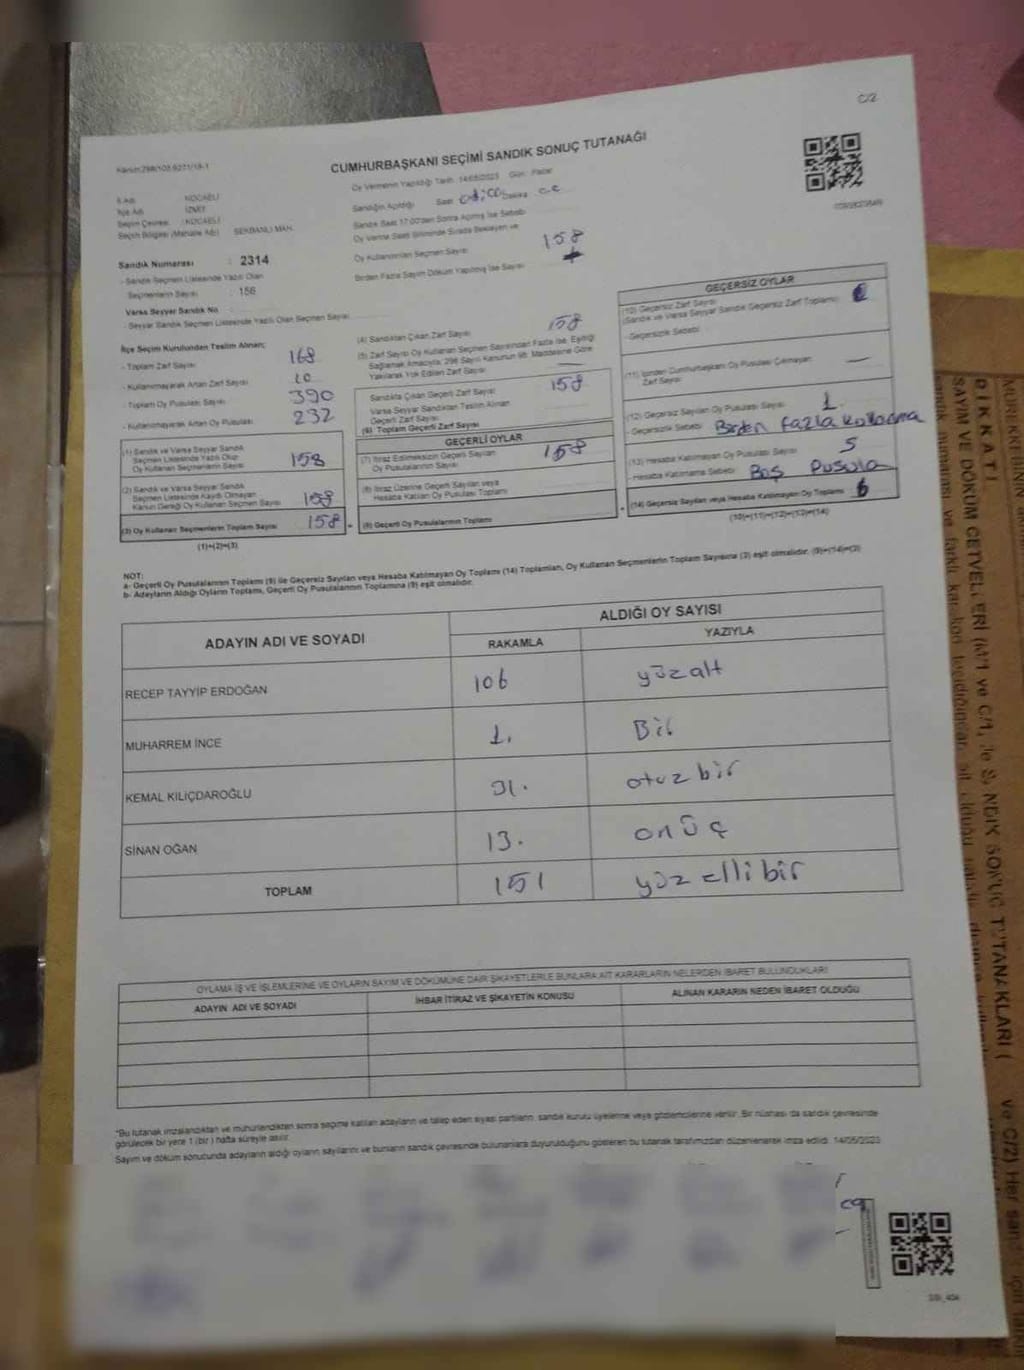 C/2
CUMHURBAŞKANI SEÇİMİ SANDIK SONUÇ TUTANAĞI
Oy Vermenin Yapıldığı Tarih 14/05/2023 Gün: Pazar
İli Adı KOCAELİ
İlçe Adı İZMİT
Seçim Çevresi : KOCAELİ
Seçim Bölgesi (Mahalle Adı) SEKBANLI MAH.
Sandığın Açıldığı Saat Dakika
Sandık Saat 17:00'den Sonra Açılmış İse Sebebi
Oy Verme Saati Bitiminde Sırada Bekleyen ve
Oy Kullandırılan Seçmen Sayısı 158
Birden Fazla Sayım Döküm Yapılmış İse Sayısı
Sandık Numarası : 2314
- Sandık Seçmen Listesinde Yazılı Olan
Seçmenlerin Sayısı : 156
Varsa Seyyar Sandık No
- Seyyar Sandık Seçmen Listesinde Yazılı Olan Seçmen Sayısı
İlçe Seçim Kurulundan Teslim Alınan;
- Toplam Zarf Sayısı 168
- Kullanılmayarak Artan Zarf Sayısı 10
- Toplam Oy Pusulası Sayısı 390
- Kullanılmayarak Artan Oy Pusulası 232
(1) Sandık ve Varsa Seyyar Sandık
Seçmen Listesinde Yazılı Olup
Oy Kullanan Seçmenlerin Sayısı 158
(2) Sandık ve Varsa Seyyar Sandık
Seçmen Listesinde Kaydı Olmayan
Kanun Gereği Oy Kullanan Seçmen Sayısı 158
(3) Oy Kullanan Seçmenlerin Toplam Sayısı 158
(1)+(2)=(3)
(4) Sandıktan Çıkan Zarf Sayısı 158
(5) Zarf Sayısı Oy Kullanan Seçmen Sayısından Fazla İse, Eşitliği
Sağlamak Amacıyla, 298 Sayılı Kanunun 98. Maddesine Göre
Yakılarak Yok Edilen Zarf Sayısı
Sandıkta Çıkan Geçerli Zarf Sayısı 158
Varsa Seyyar Sandıktan Teslim Alınan
Geçerli Zarf Sayısı
(6) Toplam Geçerli Zarf Sayısı
GEÇERLİ OYLAR
(7) İtiraz Edilmeksizin Geçerli Sayılan
Oy Pusulalarının Sayısı 158
(8) İtiraz Üzerine Geçerli Sayılan veya
Hesaba Katılan Oy Pusulası Toplamı
(9) Geçerli Oy Pusulalarının Toplamı
GEÇERSİZ OYLAR
(10) Geçersiz Zarf Sayısı
(Sandık ve Varsa Seyyar Sandık Geçersiz Zarf Toplamı)
- Geçersizlik Sebebi
(11) İçinden Cumhurbaşkanı Oy Pusulası Çıkmayan
Zarf Sayısı —
(12) Geçersiz Sayılan Oy Pusulası Sayısı 1.
- Geçersizlik Sebebi Birden fazla kullanma
(13) Hesaba Katılmayan Oy Pusulası Sayısı 5
- Hesaba Katılmama Sebebi Boş Pusula
(14) Geçersiz Sayılan veya Hesaba Katılmayan Oy Toplamı 6
(10)+(11)+(12)+(13)=(14)
NOT:
a- Geçerli Oy Pusulalarının Toplamı (9) ile Geçersiz Sayılan veya Hesaba Katılmayan Oy Toplamı (14) Toplamları, Oy Kullanan Seçmenlerin Toplam Sayısına (3) eşit olmalıdır. (9)+(14)=(3)
b- Adayların Aldığı Oyların Toplamı, Geçerli Oy Pusulalarının Toplamına (9) eşit olmalıdır.
ADAYIN ADI VE SOYADI ALDIĞI OY SAYISI
RAKAMLA YAZIYLA
RECEP TAYYİP ERDOĞAN 106 yüzaltı
MUHARREM İNCE 1. Bir
KEMAL KILIÇDAROĞLU 31. otuz bir
SİNAN OĞAN 13. on üç
TOPLAM 151 yüz elli bir
OYLAMA İŞ VE İŞLEMLERİNE VE OYLARIN SAYIM VE DÖKÜMÜNE DAİR ŞİKAYETLERLE BUNLARA AİT KARARLARIN NELERDEN İBARET BULUNDUKLARI
ADAYIN ADI VE SOYADI İHBAR İTİRAZ VE ŞİKAYETİN KONUSU ALINAN KARARIN NEDEN İBARET OLDUĞU
*Bu tutanak imzalandıktan ve mühürlendikten sonra seçime katılan adayların ve talep eden siyasi partilerin, sandık kurulu üyelerine veya gözlemcilerine verilir. Bir nüshası da sandık çevresinde
görülecek bir yere 1 (bir) hafta süreyle asılır.
Sayım ve döküm sonucunda adayların aldığı oyların sayılarını ve bunların sandık çevresinde bulunanlara duyurulduğunu gösteren bu tutanak tarafımızdan düzenlenerek imza edildi. 14/05/2023
DİKKAT!
SAYIM VE DÖKÜM CETVELLERİ
SONUÇ TUTANAKLARI
ve C/2) Her